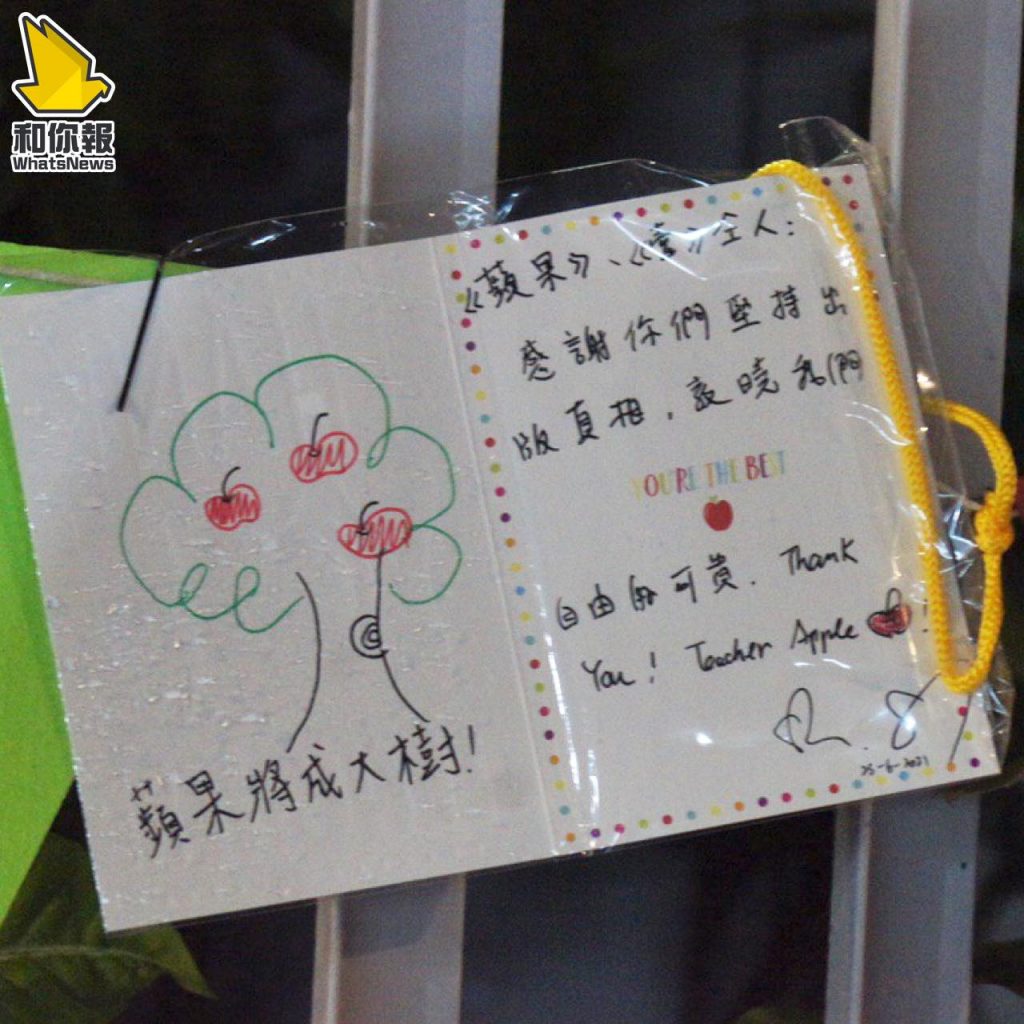 和你報
WhatsNews
蘋果將成大樹!
《蘋果》、《壹》仝人:
感謝你們堅持出
版真相,教曉我們
YOU'RE THE BEST
自由的可貴. Thank
You! Teacher Apple !
25-6-2021